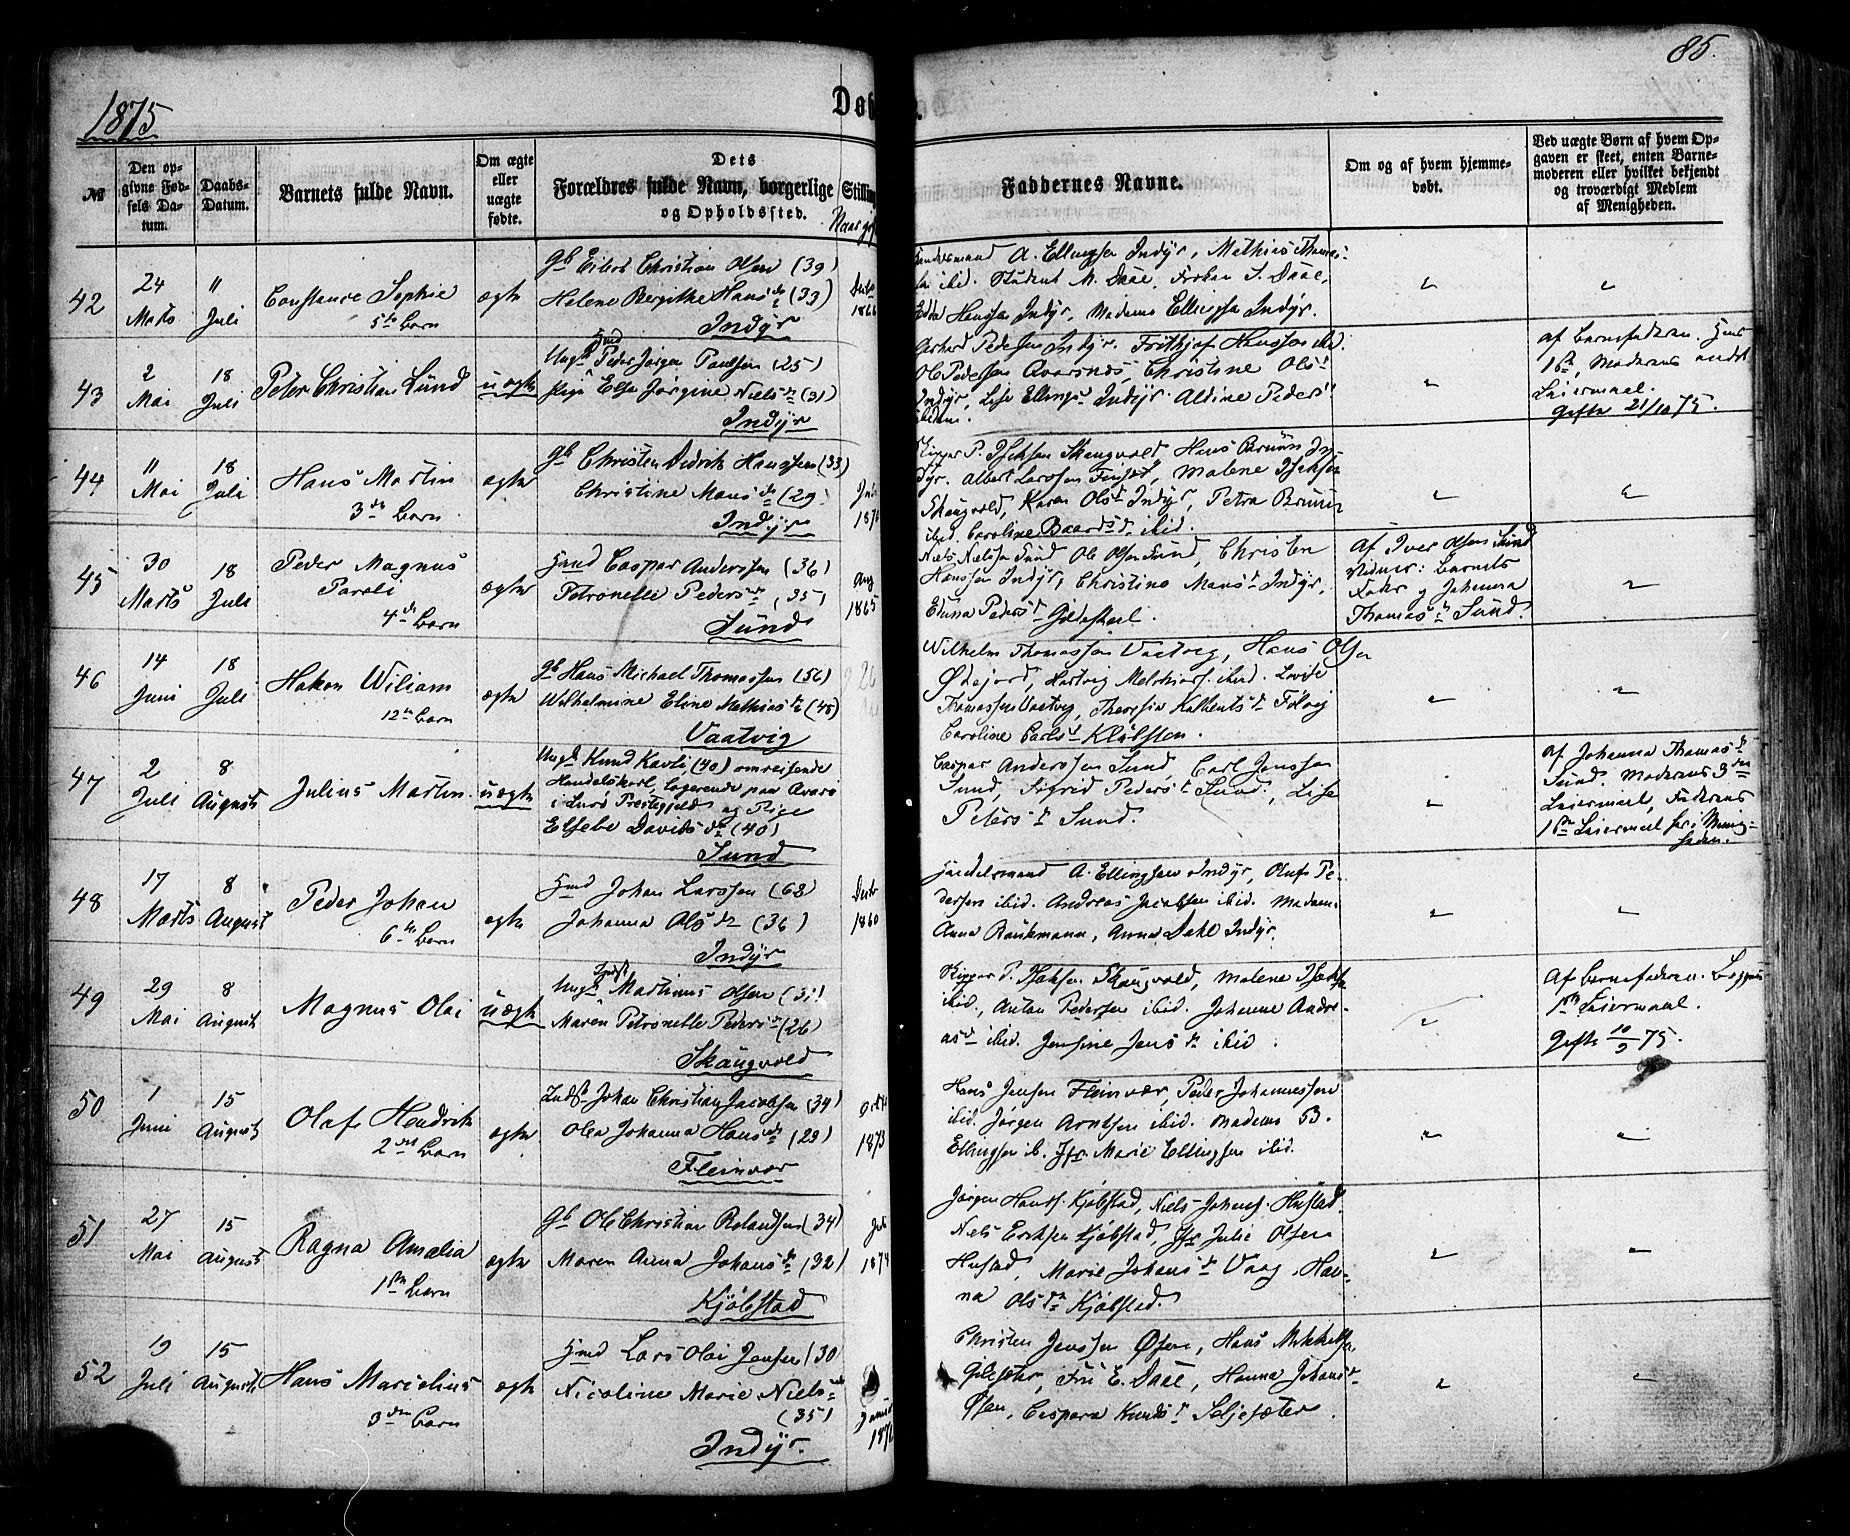 1875
Døb
85.
№
Den op-
givne Fød-
sels Da-
tum.
Daabs-
Datum.
Barnets fulde Navn.
Om ægte
eller
uægte
fødte.
Dets
Forældres fulde Navn, borgerlige Stilling
og Opholdssted.
Naar
Faddernes Navne.
Om og af hvem hjemme-
døbt.
Ved uægte Børn af hvem Op-
gaven er skeet, enten Barne-
moderen eller hvilket bekjendt
og troværdigt Medlem
af Menigheden.
42
24
Marts
11
Juli
Constance Sophie
5te Barn
ægte
Gb Eilert Christian Olsen (39)
Helene Bergithe Hansd. (33)
Indyr
1866
A. Ellingsen Indyr, Mathias Thomas-
ibid. Student M. Daae, Frøken S. Daae,
Hanssen Indyr, Madame Ellingsen Indyr.
"
"
43
2
Mai
18
Juli
Peter Christian Lund
uægte
Ungk. Peder Jørgen Paulsen (25)
Pige Else Jørgine Nielsdr (31)
Indyr
Gerhard Pedersen Indyr. Fridtjof Hanssen ibid.
Ole Pedersen Qvarsnes, Christine Olsd
Indyr, Lise Ellingsd Indyr. Aldine Pedersd
ibidem.
"
af Barnefaderen.
1ste, Moderens andet
Leiermaal.
Gifte 21/10 75.
44
11
Mai
18
Juli
Hans Martin
3die Barn
ægte
Gb Christen Didrik Hanssen (33)
Christine Mansdr (29)
Indyr
P. Isaksen Skaugvold Hans Bruun In-
dyr. Albert Larssen Finset, Malene Isaksen
Skaugvold, Karen Olsd Indyr, Petra Bruun
ibid. Caroline Baardsdr. ibid.
"
"
45
30
Marts
18
Juli
Peder Magnus
Paroli
4de Barn
ægte
Hmd Caspar Anderssen (36)
Petronelle Pedersdr (35)
Sund
Aug
1865
Niels Nielssen Sund Ole Olsen Sund, Christen
Hanssen Indyr, Christine Mansd Indyr,
Pedersd Gildeskaal.
Af Iver Olsen Sund
Vidner: Barnets
Fader og Johanna
Thomasdr Sund.
"
46
14
Juni
18
Juli
Hakon Wiliam
12te Barn
ægte
Gb Hans Michael Thomassen (56)
Wilhelmine Eline Mathiasdr (45)
Vaatvig
Wilhelm Thomassen Vaatvig, Hans Olsen
Ødejord, Hartvig Melchiors. ibid. Lovise
Thomassen Vaatvig,
Caroline Carlsd
"
"
47
2
Juli
8
August
Julius Martin
uægte
Ungk. Knud Kavli (40) omreisende
Handelskarl, logerende paa
i Lurø Prestegjeld og Pige
Elsebe Davidsdr (40)
Sund
Caspar Anderssen Sund, Carl Jenssen
Sund, Sigrid Pedersd Sund, Lise
Petersd Sund.
"
af Johanna Thomasdr
Sund. Moderens 3die
Leiermaal, Faderens
1ste Leiermaal her i Menig-
heden.
48
17
Marts
8
August
Peder Johan
6te Barn
ægte
Hmd Johan Larssen (68)
Johanna Olsdr (36)
Indyr
1860
Handelsmand A. Ellingsen Indyr, Oluf Pe-
dersen ibid. Andreas Jacobsen ibid. Madam
Anna Dahl Indyr.
"
"
49
29
Mai
8
August
Magnus Olai
uægte
Ungk. Martinus Olsen (31)
Maren Petronelle Pedersd (26)
Skaugvold
P. Isaksen Skaugvold, Malene Isaksen
ibid., Anton Pedersen ibid. Johanne Andre-
asd ibid. Jensine Jensdr ibid.
"
Af Barnefaderen. Begges
1ste Leiermaal.
Gifte 10/9 75.
50
1
Juni
15
August
Olaf Hendrik
2det Barn
ægte
Inds. Johan Christian Jacobsen (34)
Olea Johanna Hansdr (29)
Fleinvær
1873
Hans Jensen Fleinvær, Peder Johannessen
ibid. Jørgen Arntsen ibid. Madame B.
Ellingsen ib. Jfr. Marie Ellingsen ibid.
"
"
51
27
Mai
15
August
Ragna Amalia
1ste Barn
ægte
Gb Ole Christian Rolandsen (34)
Maren Anna Johansdr (32)
Kjøbstad
1874
Jørgen Hanss. Kjøbstad, Niels Johans. Hustad.
Niels Eriksen Kjøbstad, Jfr. Julie Olsen
Hustad, Marie Johansd Vaag, Han-
na Olsdr Kjøbstad.
"
"
52
19
Juli
15
August
Hans Marcelius
3die Barn
ægte
Hmd Lars Olai Jensen (30
Nicoline Marie Niels-
(35)
Indyr.
Christen Jenssen Øsen, Hans Mikkelsen
Gilsæter, Fru E. Daae, Hanna Johansd
Øsen, Caspara Knudsd Seljesæter
"
"